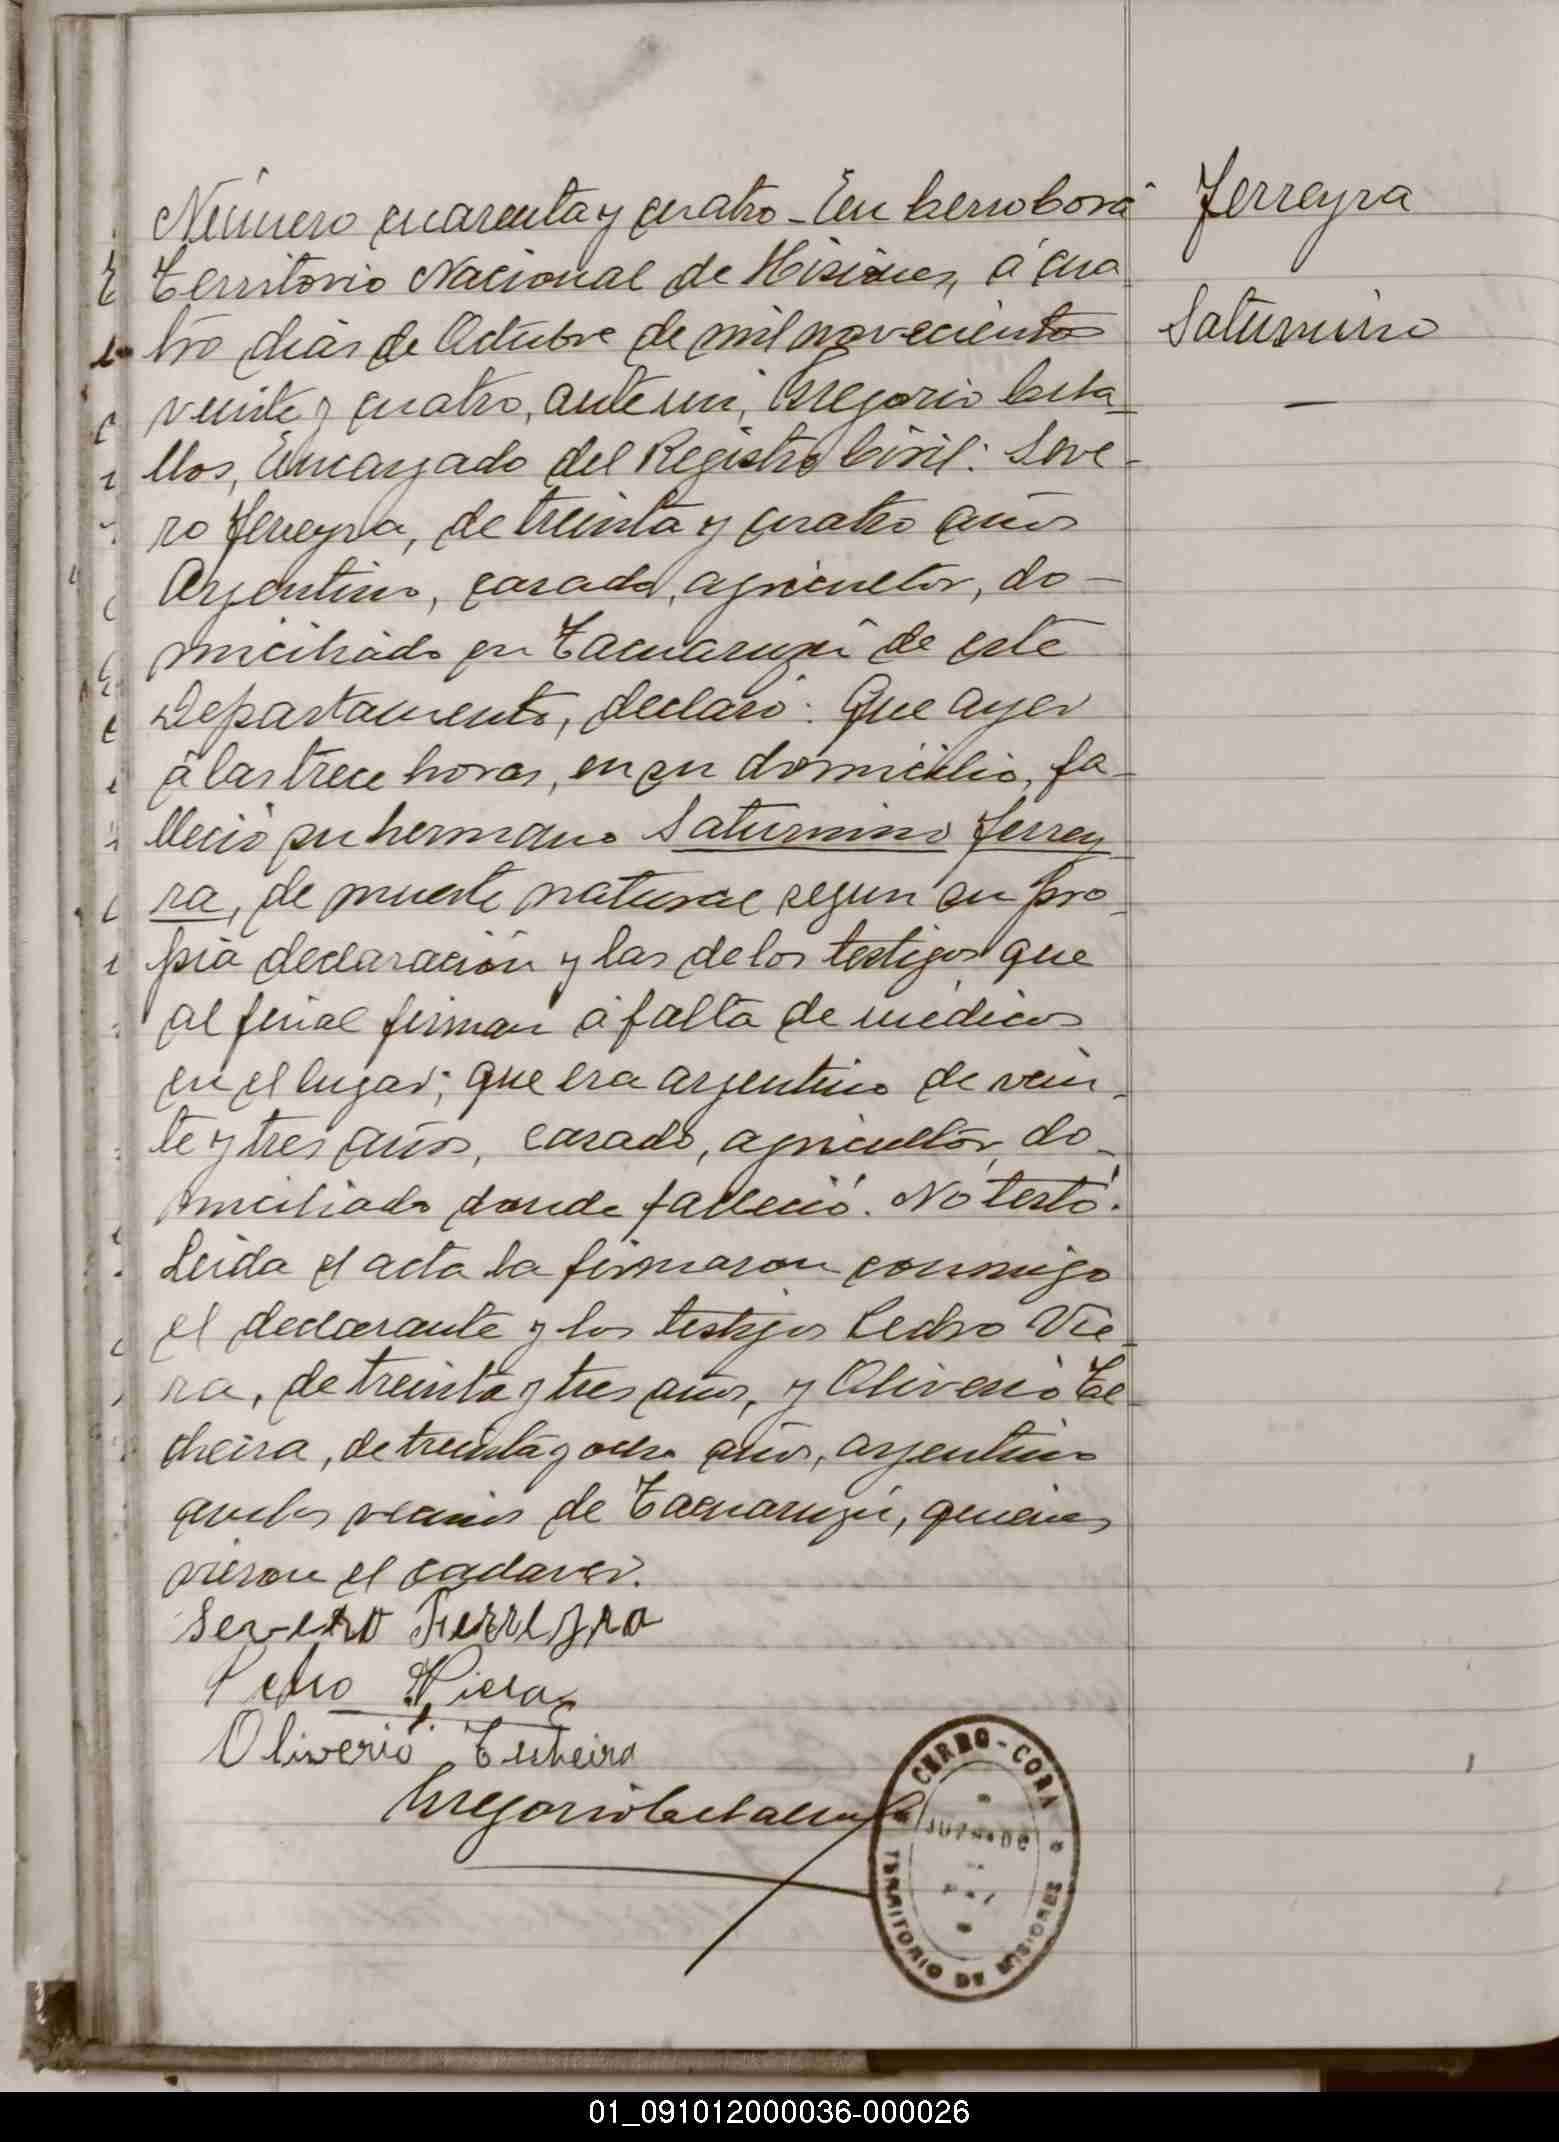 Número cuarenta y cuatro - En Cerro Corá
Territorio Nacional de Misiones, á cua
tro dias de Octubre de mil novecientos
veinte y cuatro, ante mi, Gregorio Casta-
llos, Encargado del Registro Civil: Seve-
ro Ferreyra, de treinta y cuatro años
Argentino, casado, agricultor, do-
miciliado en Tacuaruzú de este
Departamento, declaró: Que ayer
á las trece horas, en su domicilio, fa-
lleció su hermano Saturnino Ferrey
ra, de muerte natural segun su pro-
pia declaración y las de los testigos que
al final firman á falta de médicos
en el lugar; que era argentino de vein-
te y tres años, casado, agricultor, do-
miciliado donde falleció. No testó.
Leida el acta la firmaron conmigo
el declarante y los testigos Pedro Vie-
ra, de treinta y tres años, y Oliverio Te-
cheira, de treinta y ocho años, argentino
ambos vecinos de Tacuaruzú, quienes
vieron el cadaver.
Severo Ferreyra
Pedro Viera
Oliverio Techeira
Gregorio
Ferreyra
Saturnino
CERRO-CORA
JUZGADO
TERRITORIO DE MISIONES
01_091012000036-000026